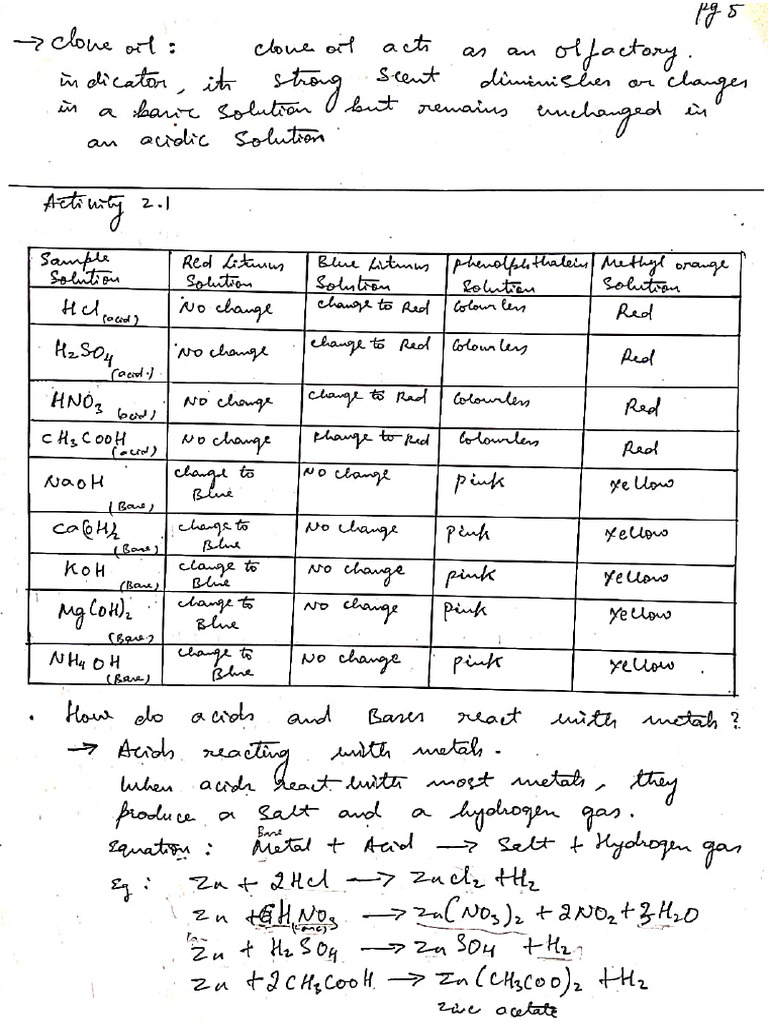 pg 5
→ Clove oil : clove oil acts as an olfactory
indicator, its strong scent diminishes or changes
in a basic solution but remains unchanged in
an acidic solution
Activity 2.1
Sample Solution | Red Litmus Solution | Blue Litmus Solution | Phenolphthalein Solution | Methyl orange Solution
HCl (acid) | No change | change to Red | Colourless | Red
H2SO4 (acid) | No change | change to Red | Colourless | Red
HNO3 (acid) | No change | change to Red | Colourless | Red
CH3COOH (acid) | No change | change to Red | Colourless | Red
NaOH (Base) | change to Blue | No change | pink | Yellow
Ca(OH)2 (Base) | change to Blue | No change | pink | Yellow
KOH (Base) | change to Blue | No change | pink | Yellow
Mg(OH)2 (Base) | change to Blue | No change | pink | Yellow
NH4OH (Base) | change to Blue | No change | pink | Yellow
. How do acids and Bases react with metals?
→ Acids reacting with metals.
When acids react with most metals, they
produce a salt and a hydrogen gas.
Base
Equation : Metal + Acid → Salt + Hydrogen gas
Eg : Zn + 2HCl → ZnCl2 + H2
Zn + HNO3 (conc) → Zn(NO3)2 + 2NO2 + H2O
Zn + H2SO4 → ZnSO4 + H2
Zn + 2CH3COOH → Zn(CH3COO)2 + H2
Zinc acetate